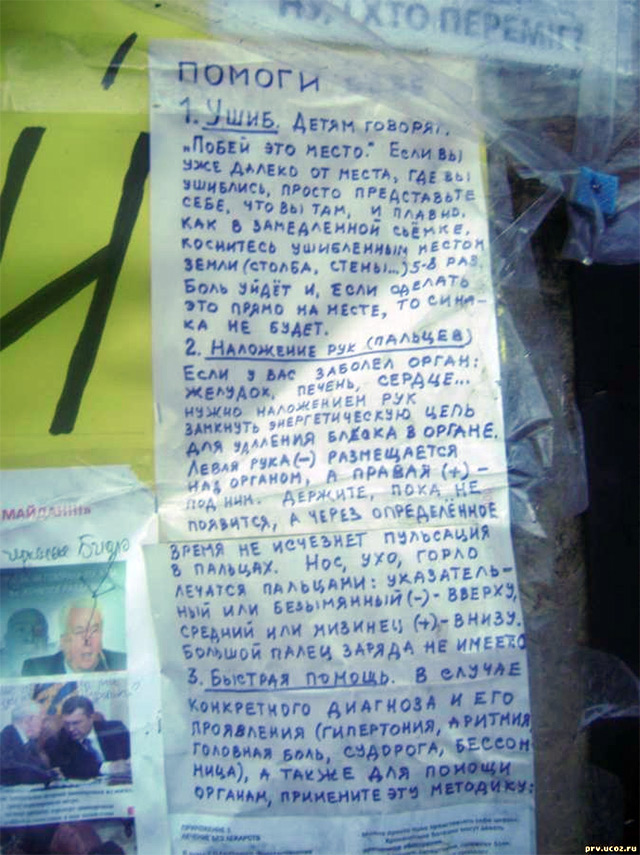 НУ, І ХТО ПЕРЕМІГ?
ПОМОГИ
1. Ушиб. Детям говорят.
„Побей это место." Если вы
уже далеко от места, где вы
ушиблись, просто представьте
себе, что вы там, и плавно,
как в замедленной съёмке,
коснитесь ушибленным местом
земли (столба, стены...) 5-8 раз.
Боль уйдёт и, если сделать
это прямо на месте, то синя-
ка не будет.
2. Наложение рук (пальцев)
Если у вас заболел орган:
желудок, печень, сердце...
нужно наложением рук
замкнуть энергетическую цепь
для удаления блока в органе.
Левая рука (-) размещается
над органом, а правая (+) -
под ним. Держите, пока не
появится, а через определённое
время не исчезнет пульсация
в пальцах. Нос, ухо, горло
лечатся пальцами: указатель-
ный или безымянный (-) - вверху,
средний или мизинец (+) - внизу.
Большой палец заряда не имеет
3. Быстрая помощь. В случае
конкретного диагноза и его
проявления (гипертония, аритмия
головная боль, судорога, бессон
ница), а также для помощи
органам, примените эту методику:
МАЙДАННІ»
ПРИЛОЖЕНИЕ 3
ЛЕЧЕНИЕ БЕЗ ЛЕКАРСТВ
prv.ucoz.ru